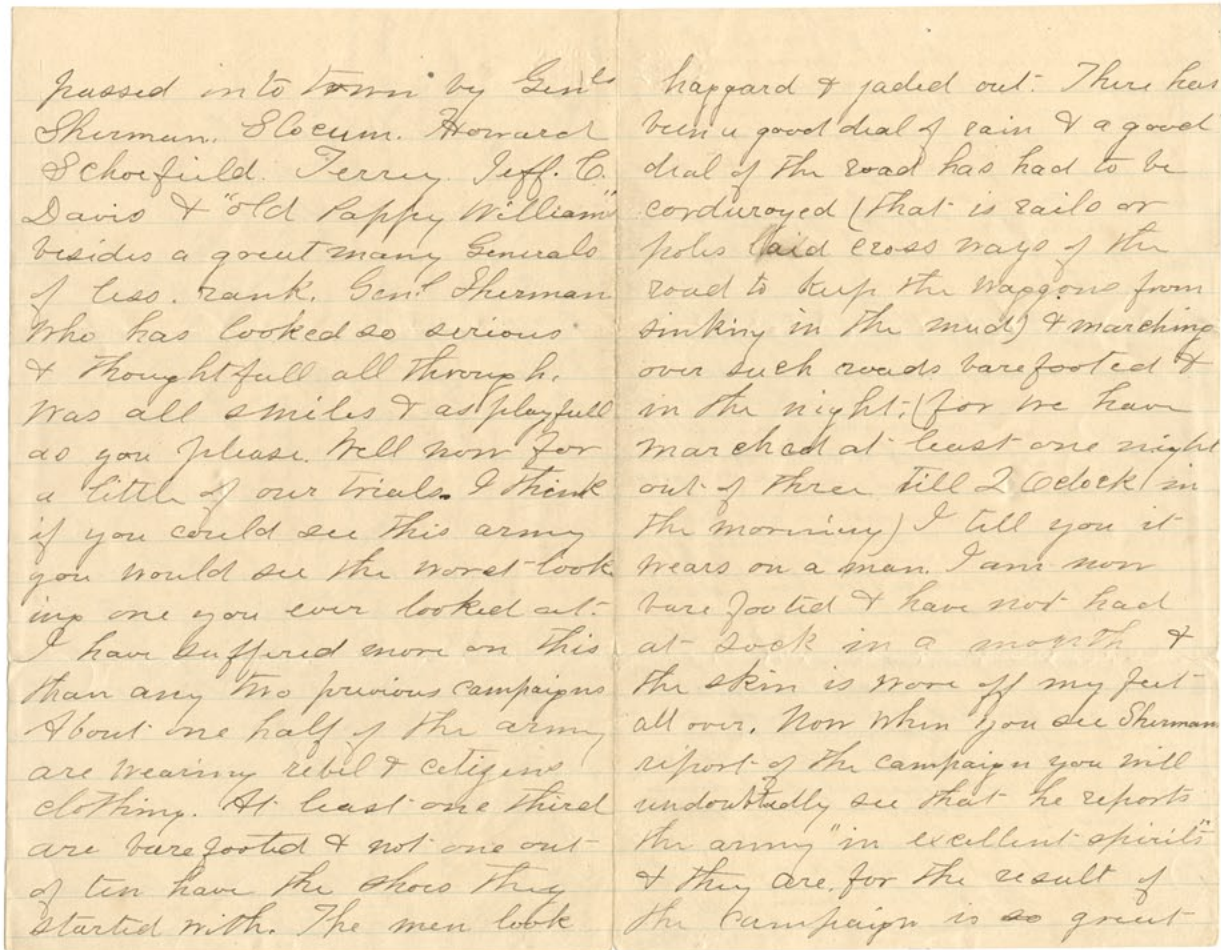 passed into town by Genls
Sherman. Slocum. Howard
Schoefield. Terry. Jeff. C.
Davis & "old Pappy William"
besides a great many Generals
of less. rank. Genl Sherman
who has looked so serious
& thoughtfull all through.
was all smiles & as playfull
as you please. Well now for
a little of our trials. I think
if you could see this army
you would see the worst look
ing one you ever looked at.
I have suffered more on this
than any two previous campaigns
About one half of the army
are wearing rebel & citizens
clothing. At least one third
are barefooted & not one out
of ten have the shoes they
started with. The men look
haggard & jaded out. There has
been a good deal of rain & a good
deal of the road has had to be
corduroyed (that is rails or
poles laid cross ways of the
road to keep the waggons from
sinking in the mud) & marching
over such roads barefooted &
in the night. (for we have
marched at least one night
out of three till 2 Oclock in
the morning) I tell you it
wears on a man. I am now
bare footed & have not had
at sock in a month &
the skin is wore off my feet
all over. Now when you see Shermans
report of the campaign you will
undoubtedly see that he reports
the army "in excellent spirits"
& they are. for the result of
the campaign is so great